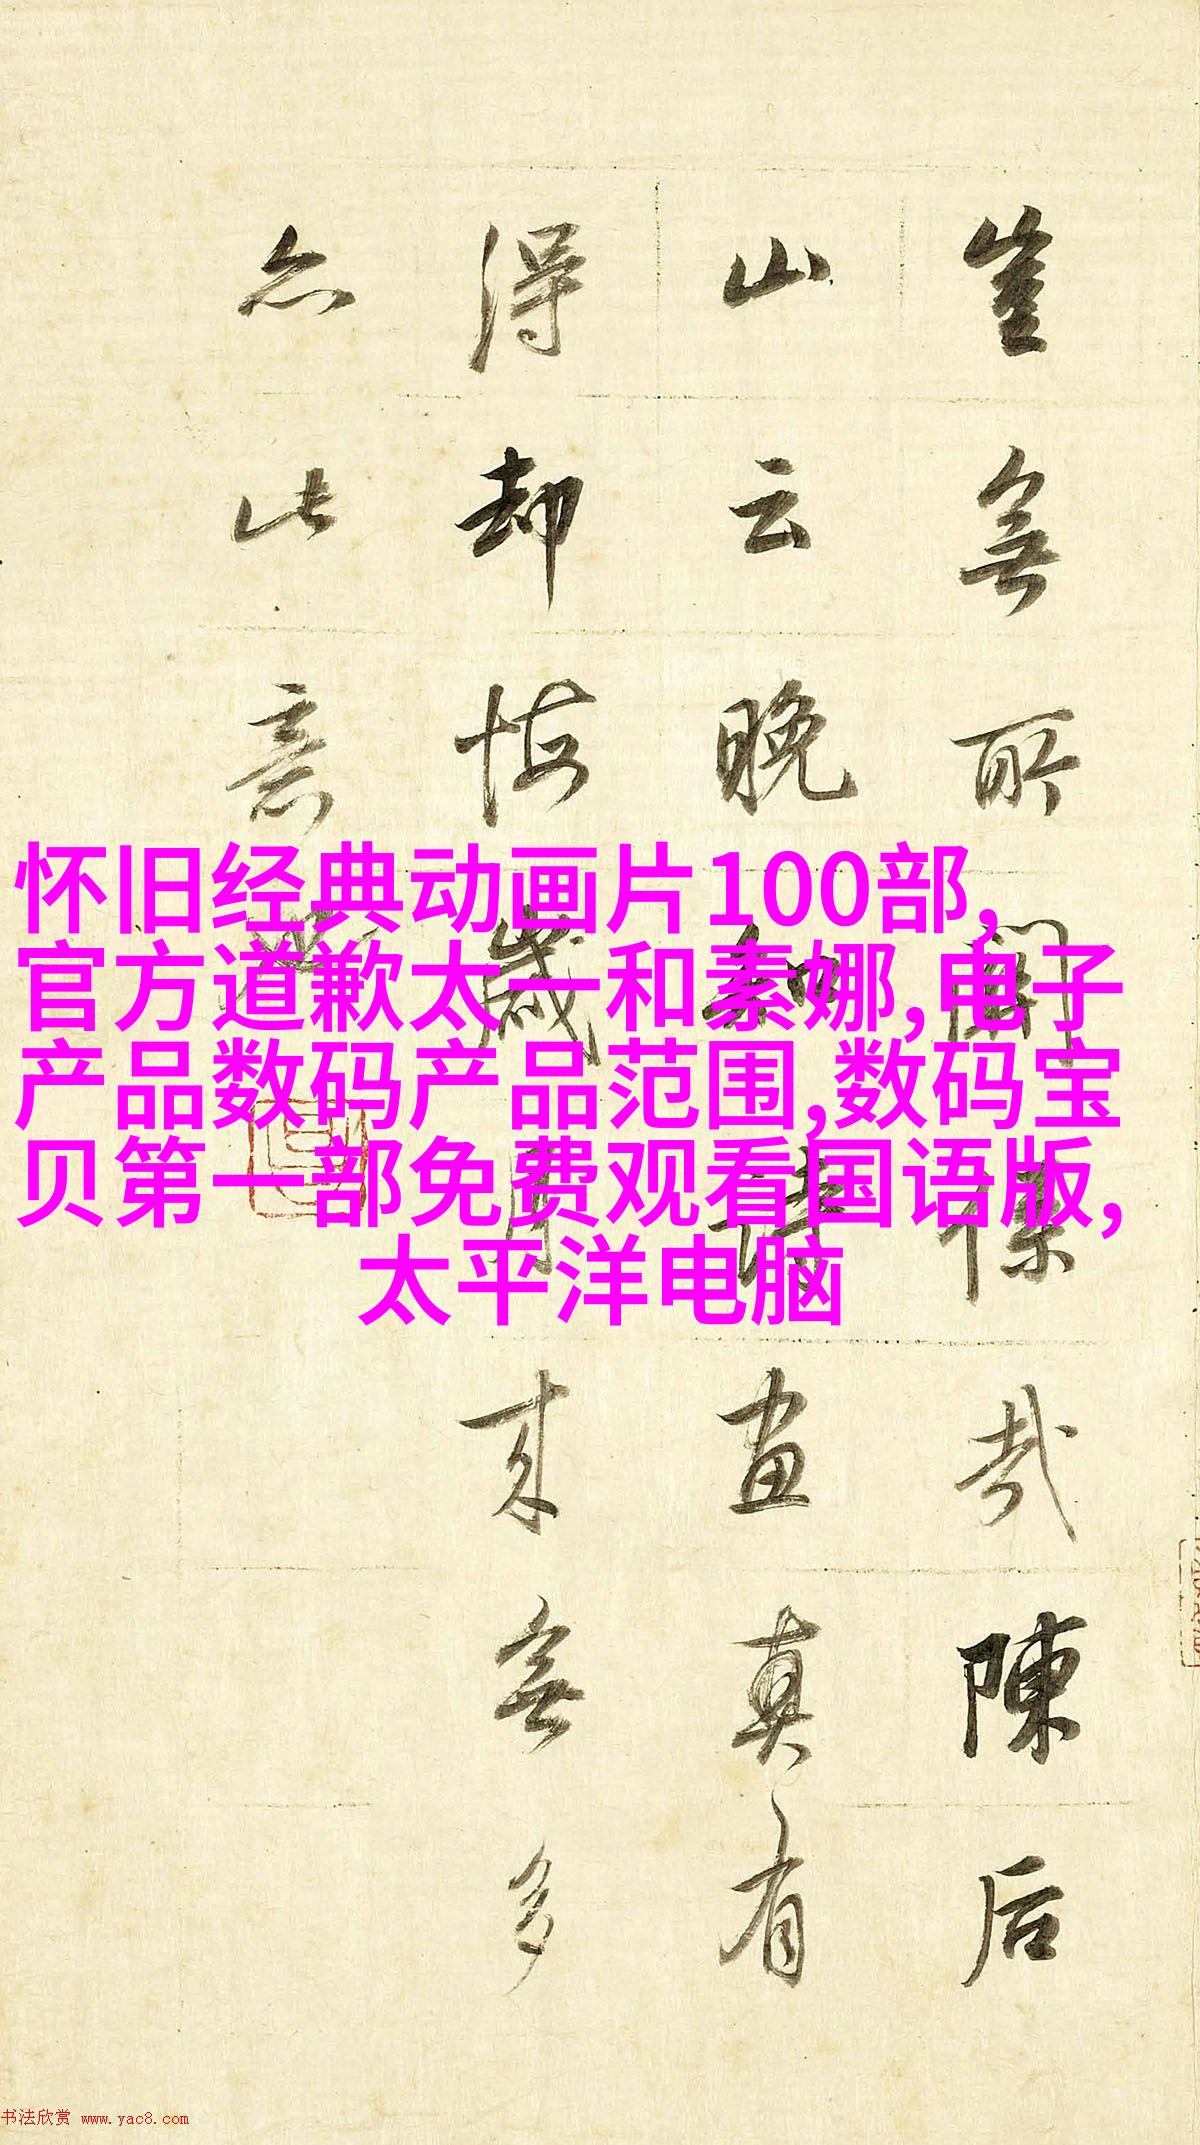 豈無所關係哉陳后
山云晚知詩畫真有
得却悔歲月来無多
亦此意也
怀旧经典动画片100部,
官方道歉太一和素娜,电子
产品数码产品范围,数码宝
贝第一部免费观看国语版,
太平洋电脑
书法欣赏 www.yac8.com